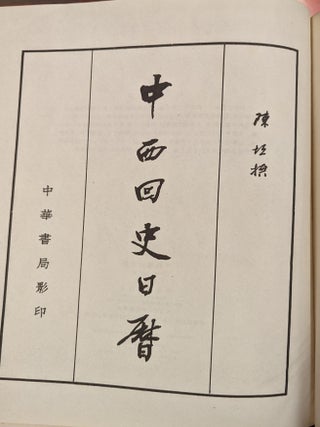 陳垣撰
中西回史日曆
中華書局影印